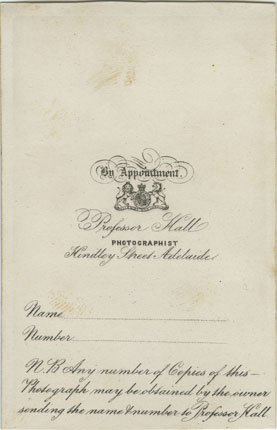 By Appointment.
Professor Hall
PHOTOGRAPHIST
Hindley Street Adelaide
Name
Number
N.B Any number of Copies of this
Photograph may be obtained by the owner
sending the name & number to Professor Hall